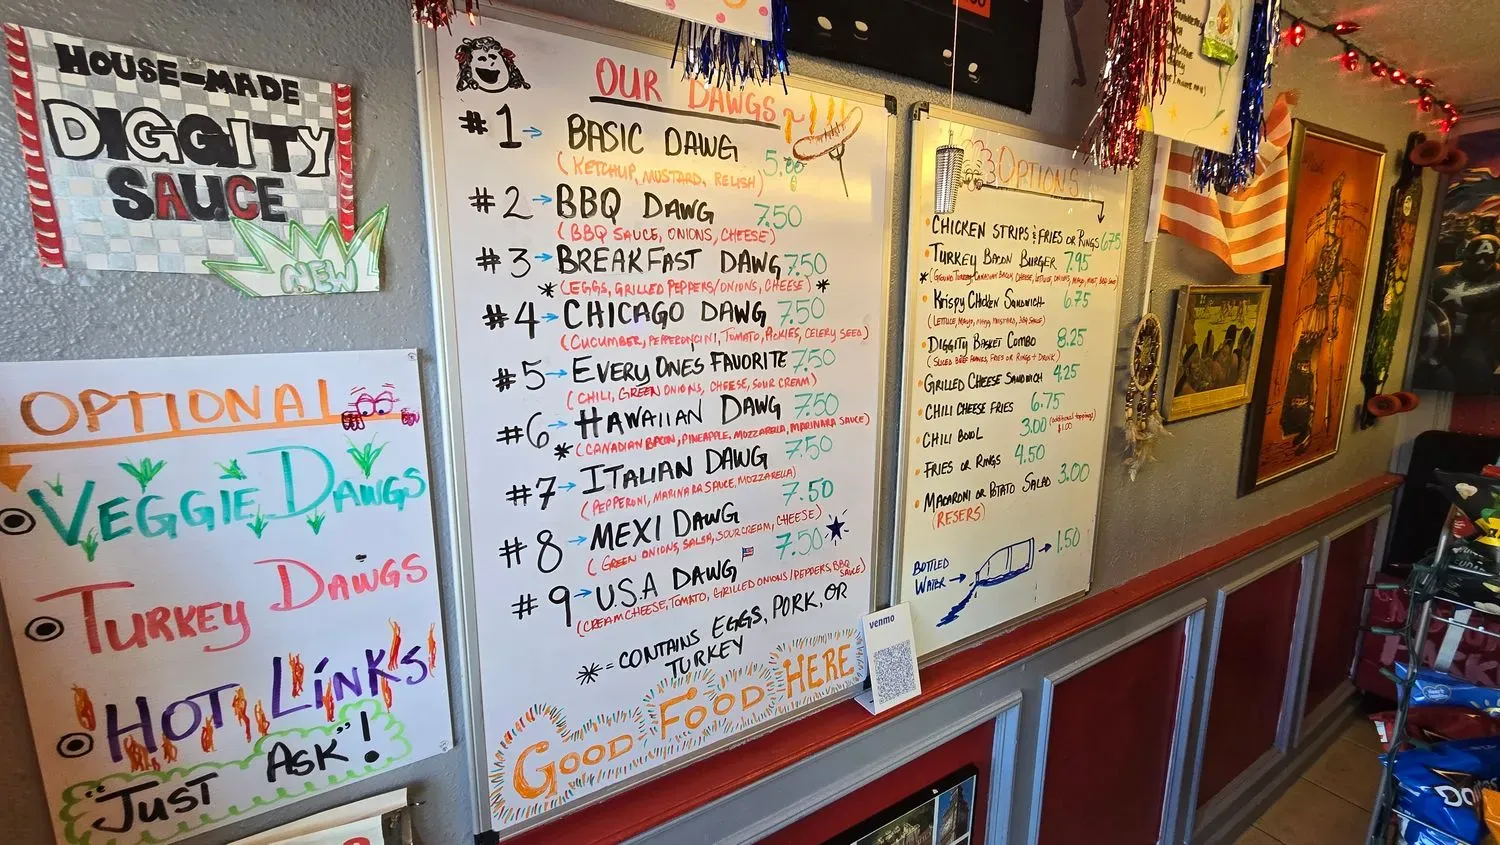 HOUSE-MADE
DIGGITY
SAUCE
NEW
OPTIONAL
VEGGIE DAWGS
TURKEY DAWGS
HOT LINKS
"JUST ASK"!
OUR DAWGS
#1→ BASIC DAWG 5.00
(KETCHUP, MUSTARD, RELISH)
#2→ BBQ DAWG 7.50
(BBQ SAUCE, ONIONS, CHEESE)
#3→ BREAKFAST DAWG 7.50
* (EGGS, GRILLED PEPPERS/ONIONS, CHEESE) *
#4→ CHICAGO DAWG 7.50
(CUCUMBER, PEPPERONCINI, TOMATO, PICKLES, CELERY SEED)
#5→ EVERYONES FAVORITE 7.50
(CHILI, GREEN ONIONS, CHEESE, SOUR CREAM)
#6→ HAWAIIAN DAWG 7.50
* (CANADIAN BACON, PINEAPPLE, MOZZARELLA, MARINARA SAUCE)
#7→ ITALIAN DAWG 7.50
(PEPPERONI, MARINARA SAUCE, MOZZARELLA)
#8→ MEXI DAWG 7.50
(GREEN ONIONS, SALSA, SOUR CREAM, CHEESE)
#9→ U.S.A DAWG 7.50
(CREAM CHEESE, TOMATO, GRILLED ONIONS/PEPPERS, BBQ SAUCE)
* = CONTAINS EGGS, PORK, OR
TURKEY
GOOD FOOD HERE
venmo
OPTIONS
CHICKEN STRIPS & FRIES OR RINGS 6.75
TURKEY BACON BURGER 7.95
* (GROUND TURKEY, CANADIAN BACON, CHEESE, LETTUCE, ONIONS, MAYO, MUST, BBQ SAUCE)
KRISPY CHICKEN SANDWICH 6.75
(LETTUCE, MAYO, MUSTARD, BBQ SAUCE)
DIGGITY BASKET COMBO 8.25
(SLICED BEEF FRANKS, FRIES OR RINGS + DRINK)
GRILLED CHEESE SANDWICH 4.25
CHILI CHEESE FRIES 6.75
CHILI BOWL 3.00 (additional topping) $1.00
FRIES OR RINGS 4.50
MACARONI OR POTATO SALAD 3.00
(RESERS)
BOTTLED
WATER → → 1.50